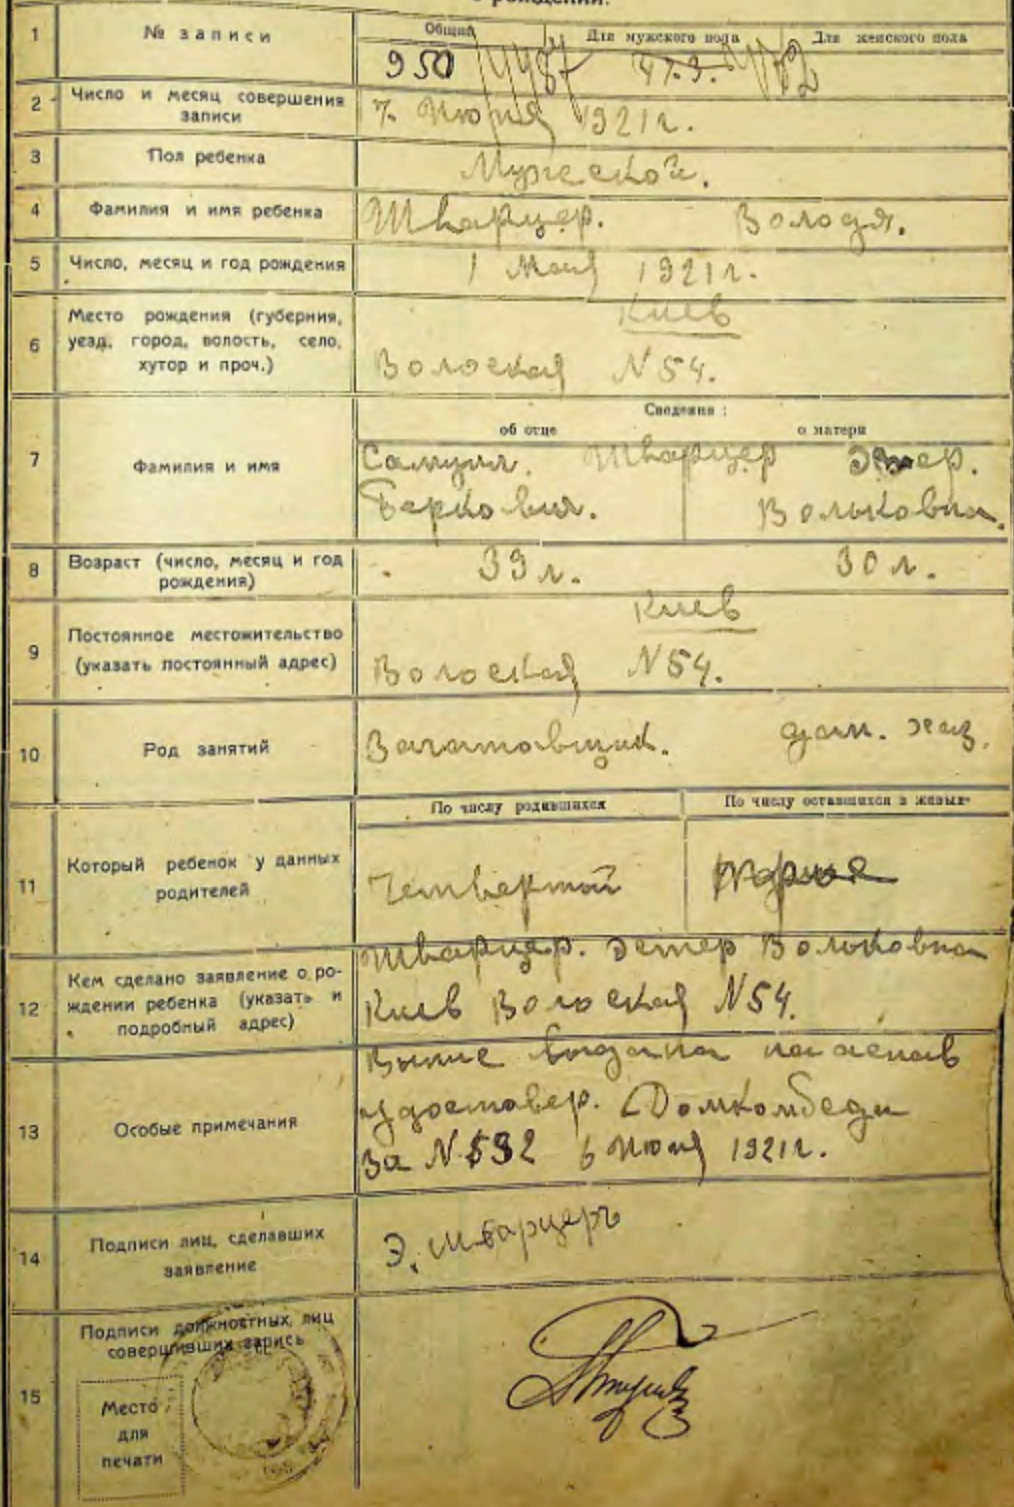 о рождении.
1 № записи Общий Для мужского пола Для женского пола
950 1487 473. 772
2 Число и месяц совершения записи
7. Июня 1921 г.
3 Пол ребенка Мужеской.
4 Фамилия и имя ребенка Шварцер. Володя.
5 Число, месяц и год рождения 1 Мая 1921 г.
6 Место рождения (губерния, уезд, город, волость, село, хутор и проч.)
Киев
Волоская N 54.
Сведения:
об отце о матери
7 Фамилия и имя
Самуил. Шварцер Эстер.
Беркович. Вольковна.
8 Возраст (число, месяц и год рождения) 39 л. 30 л.
9 Постоянное местожительство (указать постоянный адрес)
Киев
Волоская N 54.
10 Род занятий Заготовщик. дом. хаз.
По числу родившихся По числу оставшихся в живых
11 Который ребенок у данных родителей Четвертой
12 Кем сделано заявление о рождении ребенка (указать и подробный адрес)
Шварцер. Эстер Вольковна
Киев Волоская N 54.
13 Особые примечания
выдана на аснов
удостовер. Домкомбеда
За N 592 6 Июня 1921 г.
14 Подписи лиц, сделавших заявление
Э. Шварцеръ
15 Подписи должностных лиц совершивших запись
Место
для
печати